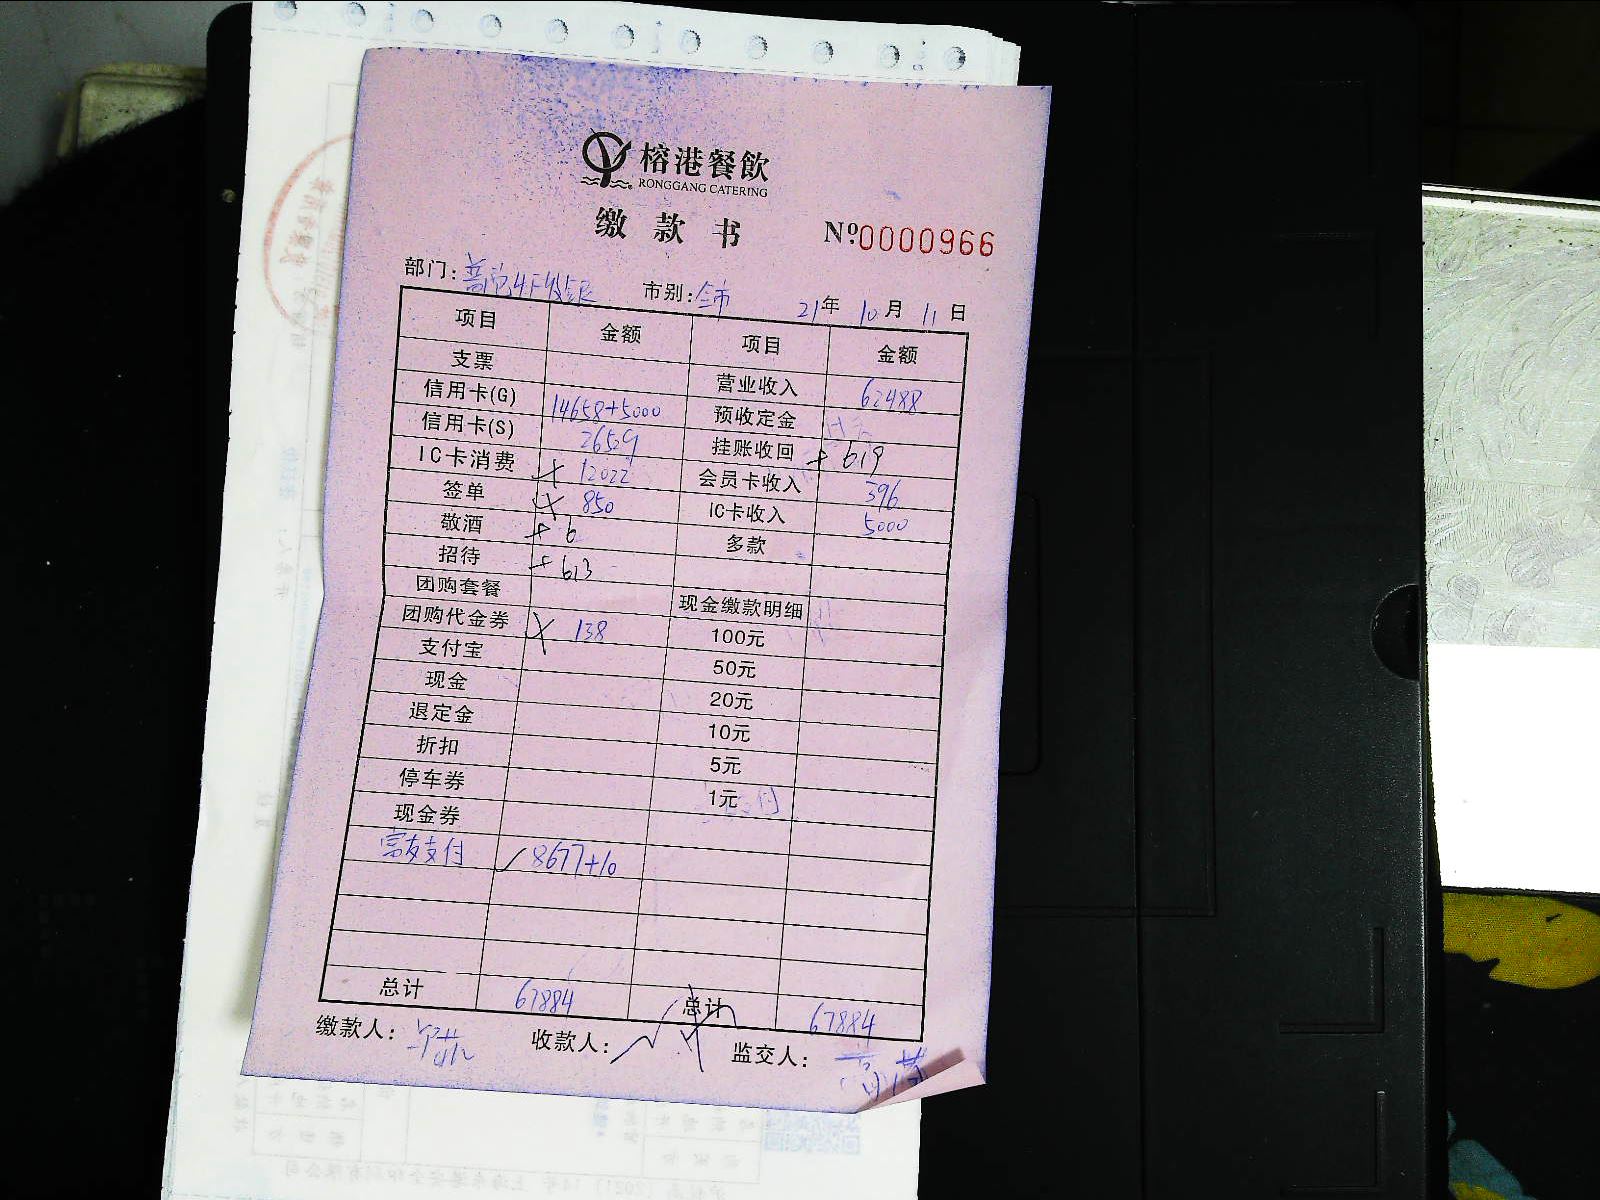 榕港餐飲
RONGGANG CATERING
缴款书
Nº0000966
部门: 市别:全市 21年 10月 11日
项目 金额 项目 金额
支票 营业收入 62488
信用卡(G) 14658+5000 预收定金
信用卡(S) 2659 挂账收回 + 619
IC卡消费 12022 会员卡收入 396
签单 850 IC卡收入 5000
敬酒 + 6 多款
招待 + 613
团购套餐 现金缴款明细
团购代金券 138 100元
支付宝 50元
现金 20元
退定金 10元
折扣 5元
停车券 1元
现金券
富友支付 8677+10
总计 67884 总计 67884
缴款人: 收款人: 监交人: